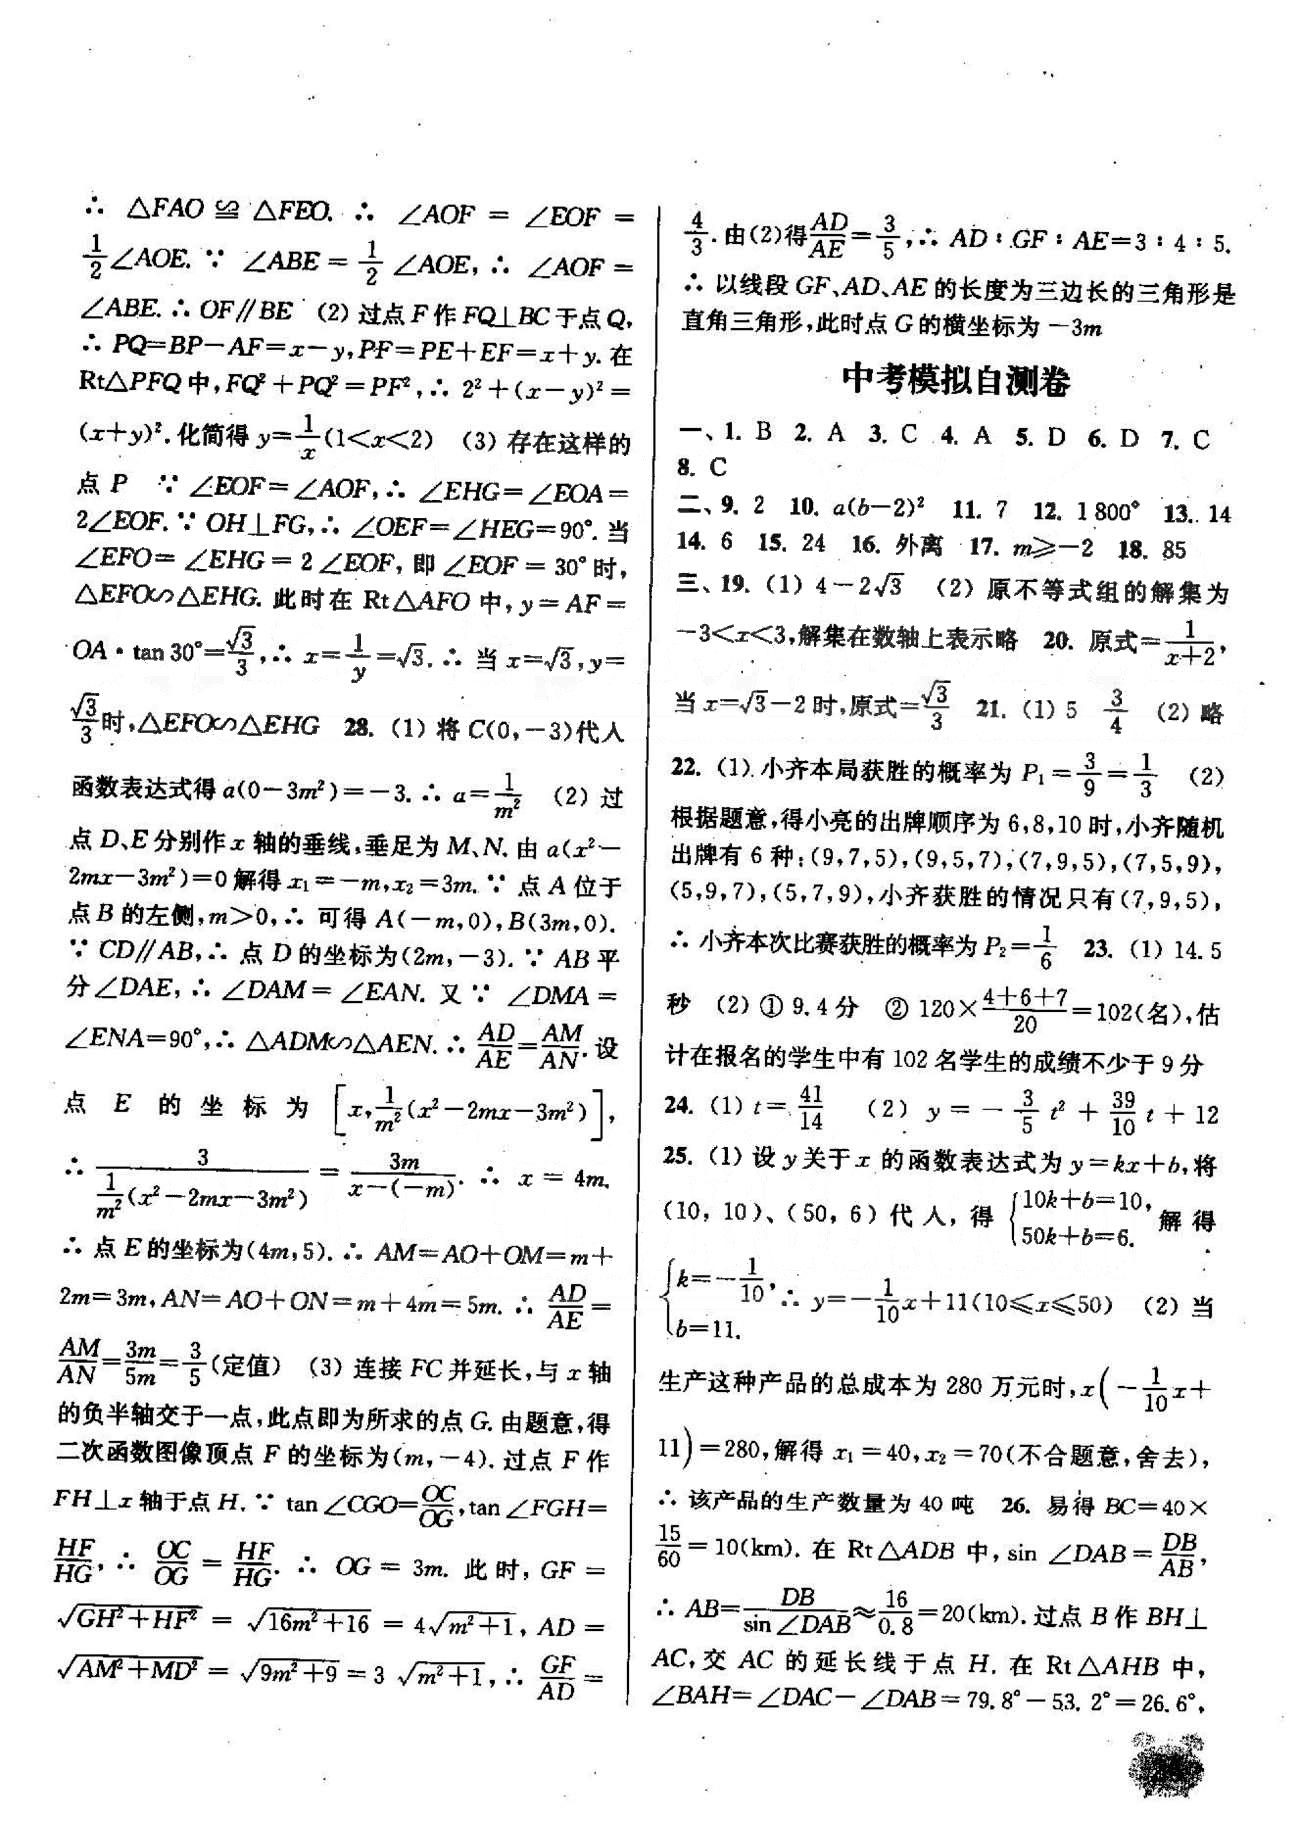 ∴ △FAO ≌ △FEO. ∴ ∠AOF = ∠EOF =
1/2∠AOE. ∵ ∠ABE = 1/2 ∠AOE, ∴ ∠AOF =
∠ABE. ∴ OF∥BE (2) 过点 F 作 FQ⊥BC 于点 Q,
∴ PQ=BP−AF=x−y,PF=PE+EF=x+y. 在
Rt△PFQ 中,FQ²+PQ²=PF²,∴ 2²+(x−y)²=
(x+y)². 化简得 y=1/x(1<x<2) (3) 存在这样的
点 P ∵ ∠EOF=∠AOF,∴ ∠EHG=∠EOA=
2∠EOF. ∵ OH⊥FG,∴ ∠OEF=∠HEG=90°. 当
∠EFO=∠EHG=2∠EOF, 即 ∠EOF=30°时,
△EFO∽△EHG. 此时在 Rt△AFO 中, y=AF=
OA·tan 30°=√3/3,∴ x=1/y=√3. ∴ 当 x=√3,y=
√3/3时,△EFO∽△EHG 28. (1) 将 C(0,−3)代人
函数表达式得 a(0−3m²)=−3. ∴ a=1/m² (2) 过
点 D、E 分别作 x 轴的垂线,垂足为 M、N. 由 a(x²−
2mx−3m²)=0 解得 x₁=−m,x₂=3m. ∵ 点 A 位于
点 B 的左侧,m>0,∴ 可得 A(−m,0),B(3m,0).
∵ CD∥AB,∴ 点 D 的坐标为(2m,−3). ∵ AB 平
分∠DAE, ∴ ∠DAM=∠EAN. 又 ∵ ∠DMA=
∠ENA=90°,∴ △ADM∽△AEN. ∴ AD/AE=AM/AN. 设
点 E 的坐标为 [x,1/m²(x²−2mx−3m²)],
∴ 3/(1/m²(x²−2mx−3m²)) = 3m/(x−(−m)). ∴ x=4m.
∴ 点 E 的坐标为(4m,5). ∴ AM=AO+OM=m+
2m=3m,AN=AO+ON=m+4m=5m. ∴ AD/AE=
AM/AN=3m/5m=3/5(定值) (3) 连接 FC 并延长,与 x 轴
的负半轴交于一点,此点即为所求的点 G. 由题意,得
二次函数图像顶点 F 的坐标为(m,−4). 过点 F 作
FH⊥x 轴于点 H. ∵ tan ∠CGO=OC/OG,tan ∠FGH=
HF/HG, ∴ OC/OG = HF/HG. ∴ OG = 3m. 此时, GF =
√(GH²+HF²) = √(16m²+16) = 4√(m²+1), AD =
√(AM²+MD²) = √(9m²+9) = 3√(m²+1), ∴ GF/AD =
4/3. 由(2)得AD/AE=3/5,∴ AD∶GF∶AE=3∶4∶5.
∴ 以线段 GF、AD、AE 的长度为三边长的三角形是
直角三角形,此时点 G 的横坐标为 −3m
中考模拟自测卷
一、1. B 2. A 3. C 4. A 5. D 6. D 7. C
8. C
二、9. 2 10. a(b−2)² 11. 7 12. 1 800° 13. 14
14. 6 15. 24 16. 外离 17. m≥−2 18. 85
三、19. (1) 4−2√3 (2) 原不等式组的解集为
−3<x<3,解集在数轴上表示略 20. 原式=1/(x+2),
当 x=√3−2 时,原式=√3/3 21. (1) 5 3/4 (2) 略
22. (1) 小齐本局获胜的概率为 P₁=3/9=1/3 (2)
根据题意,得小亮的出牌顺序为 6,8,10 时,小齐随机
出牌有 6 种:(9,7,5),(9,5,7),(7,9,5),(7,5,9),
(5,9,7),(5,7,9),小齐获胜的情况只有(7,9,5),
∴ 小齐本次比赛获胜的概率为 P₂=1/6 23. (1) 14.5
秒 (2) ① 9.4 分 ② 120×(4+6+7)/20=102(名),估
计在报名的学生中有 102 名学生的成绩不少于 9 分
24. (1) t=41/14 (2) y=−3/5 t²+39/10 t+12
25. (1) 设 y 关于 x 的函数表达式为 y=kx+b,将
(10, 10)、(50, 6) 代人, 得 {10k+b=10, 50k+b=6. 解得
{k=−1/10, b=11. ∴ y=−1/10x+11(10≤x≤50) (2) 当
生产这种产品的总成本为 280 万元时,x(−1/10x+
11)=280,解得 x₁=40,x₂=70(不合题意,舍去),
∴ 该产品的生产数量为 40 吨 26. 易得 BC=40×
15/60=10(km). 在 Rt△ADB 中, sin ∠DAB=DB/AB,
∴ AB=DB/sin ∠DAB≈16/0.8=20(km). 过点 B 作 BH⊥
AC,交 AC 的延长线于点 H. 在 Rt△AHB 中,
∠BAH=∠DAC−∠DAB=79.8°−53.2°=26.6°,